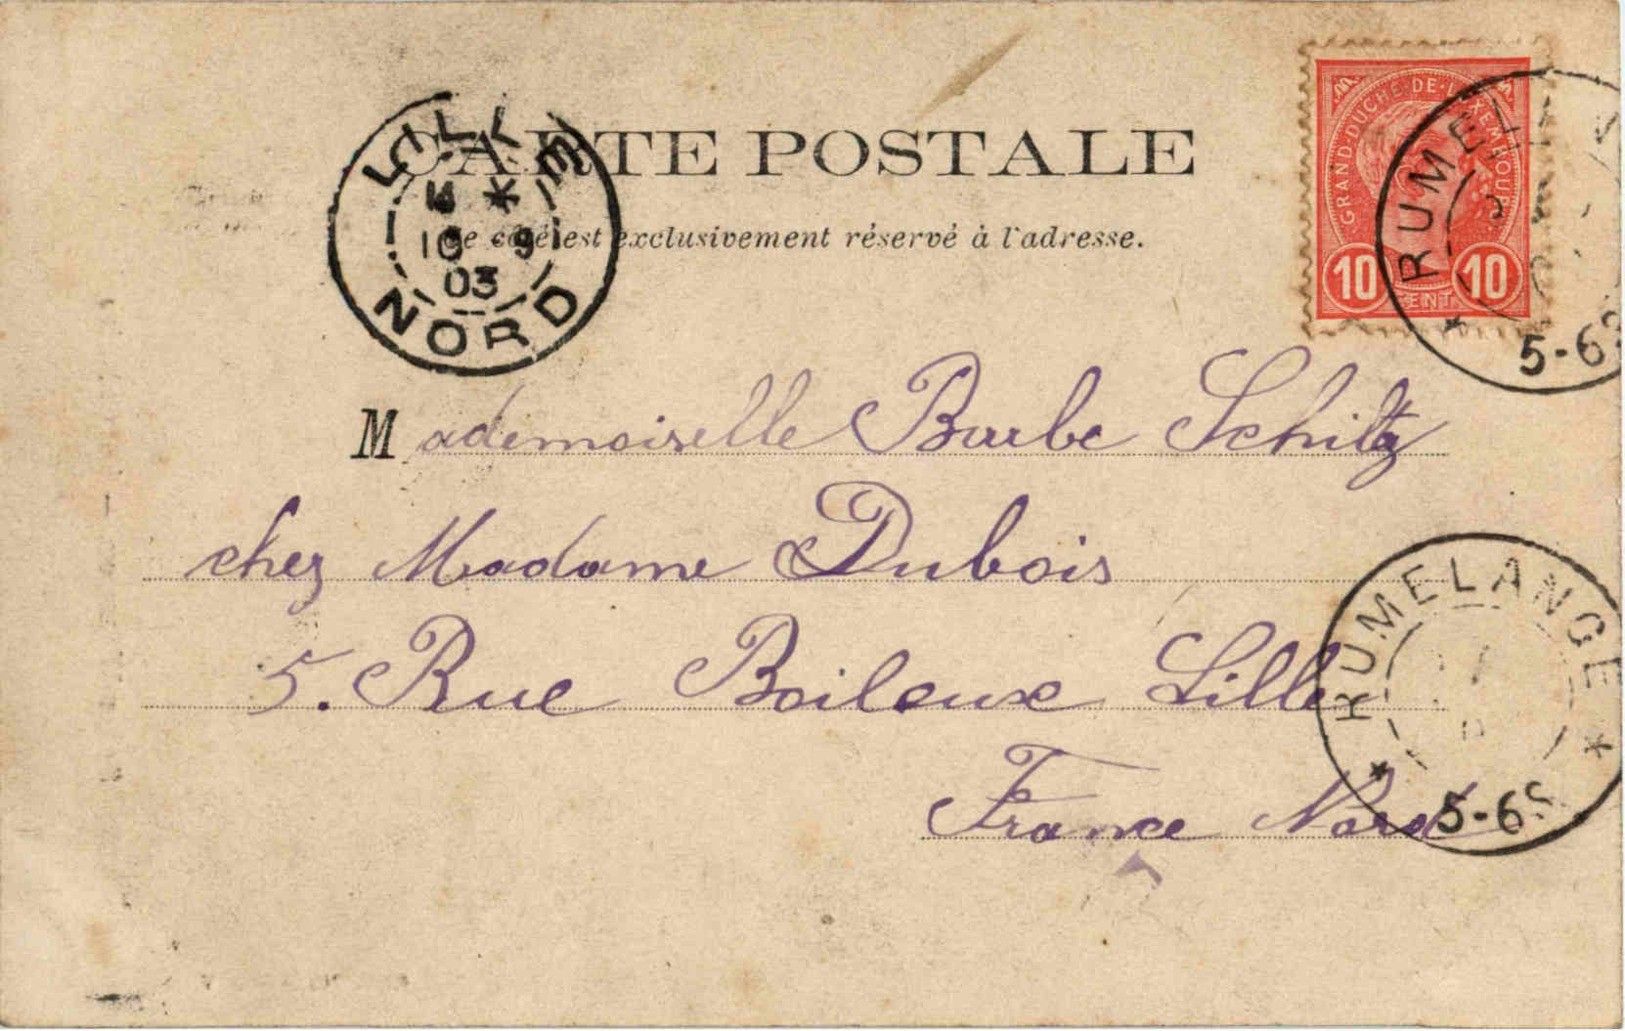 CARTE POSTALE
Ce côté est exclusivement réservé à l'adresse.
LILLE
10 9
03
NORD
GRAND-DUCHÉ-DE-LUXEMBOURG
10 CENT. 10
RUMELAN
5-6S
Mademoiselle Barbe Schiltz
chez Madame Dubois
5. Rue Boileux Lille
France Nord
RUMELANGE
5-6S